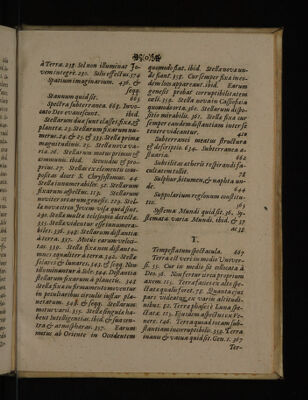 à Terra. 238. Sol non illuminat Jo-
vem integrè. 250. Solis effectus. 574
Spatium imaginarium. 436. &
seqq.
Stannum quid sit. 665
Spectra subterranea. 668. Invo-
cato Deo evanescunt. ibid.
Stellarum duæ sunt classes, fixæ, &
planetæ. 23. Stellarum fixarum nu-
merus. 24. & 25. & 335. Stella prima
magnitudinis. 25. Stella nova va-
ria. 26. Stellarum motus primus &
communis. ibid. Secundus & pro-
prius. 27. Stellas ex elementis com-
positas docet S. Chrysostomus. 44
Stella innumerabiles. 32. Stellarum
fixarum asperitas. 119. Stellarum
novitas rerum genesis. 229. Stel-
la nova
250. Stella multæ telescopio detectæ.
335. Stella videntur esse innumera-
biles. 336. 348. Stellarum distantia
à terra. 337. Motus earum veloci-
tas. 339. Stella fixa non distant om-
nes æqualiter à terra. 342. Stella
solares, & lunares. 343. & seqq. Non
illuminantur à Sole. 344. Distantia
stellarum fixarum à planetis. 348
Stella fixa in firmamento moventur
in peculiaribus circulis instar pla-
netarum. 348. & seqq. Stellarum
motus varii. 355. Stella singula ha-
bent Intelligentias. ibid. & sua cen-
tra & atmosphæras. 357. Earum
motus ab Oriente in Occidentem
quomodo fiat. ibid. Stella nova un-
de fiant. 358. Cur semper fixa in eo-
dem loco appareant. ibid. Earum
genesis probat corruptibilitatem
cæli. 359. Stella nova in Cassiopæa
quomodo orta. 360. Stellarum dispo-
sitio mirabilis. 361. Stella fixa cur
semper eandem distantiam inter se
tenere videantur. 420
Subterranei meatus structura
& descriptio. 634. Subterranea ca-
stitas. 668
Subtilitas ætheris respirandi fa-
cultatem tollit. 78
Sulphur, bitumen, & naphta un-
de. 644
Suppolarium regionum constitu-
tio. 23
Systema Mundi quid sit. 36. Sy-
stemata varia Mundi. ibid. & 37
ac 38.
T.
Tempestatum spectacula. 667
Terra est veri in medio Univer-
si. 35. Cur in medio sit collocata à
Deo. 36. Non fert ur circa proprium
axem. 115. Terra facies ex alto spe-
ctata qualis foret. 78. Quanta, &
pars videatur, ex variis altitudi-
nibus. 83. Terra phases è Luna spe-
ctata. 113. Ejusdem aspectus ex Ve-
nere. 146. Terra quoad totam sub-
stantiam incorruptibilis. 359. Terra
inanis & vacua quid sit. Gen. 1. 367
Ter-